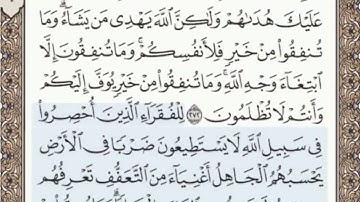 عَلَيْكَ هُدَىٰهُمْ وَلَٰكِنَّ ٱللَّهَ يَهْدِى مَن يَشَآءُ ۗ وَمَا
تُنفِقُوا۟ مِنْ خَيْرٍ فَلِأَنفُسِكُمْ ۚ وَمَا تُنفِقُونَ إِلَّا
ٱبْتِغَآءَ وَجْهِ ٱللَّهِ ۚ وَمَا تُنفِقُوا۟ مِنْ خَيْرٍ يُوَفَّ إِلَيْكُمْ
وَأَنتُمْ لَا تُظْلَمُونَ ٢٧٢ لِلْفُقَرَآءِ ٱلَّذِينَ أُحْصِرُوا۟
فِى سَبِيلِ ٱللَّهِ لَا يَسْتَطِيعُونَ ضَرْبًا فِى ٱلْأَرْضِ
يَحْسَبُهُمُ ٱلْجَاهِلُ أَغْنِيَآءَ مِنَ ٱلتَّعَفُّفِ تَعْرِفُهُم